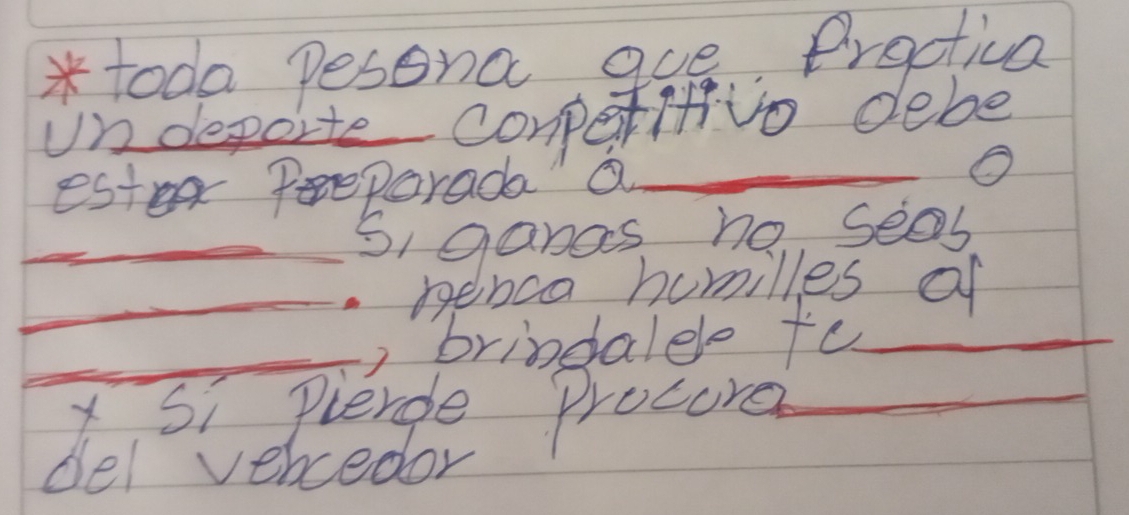 * toda Pesona que Practica
un deporte Conpetitivo debe
estar Preparada a ________ o
________ Si ganas no seas
________. nunca humilles al
________, brindalele tu ________
y Si Pierde Procura ________
del vencedor